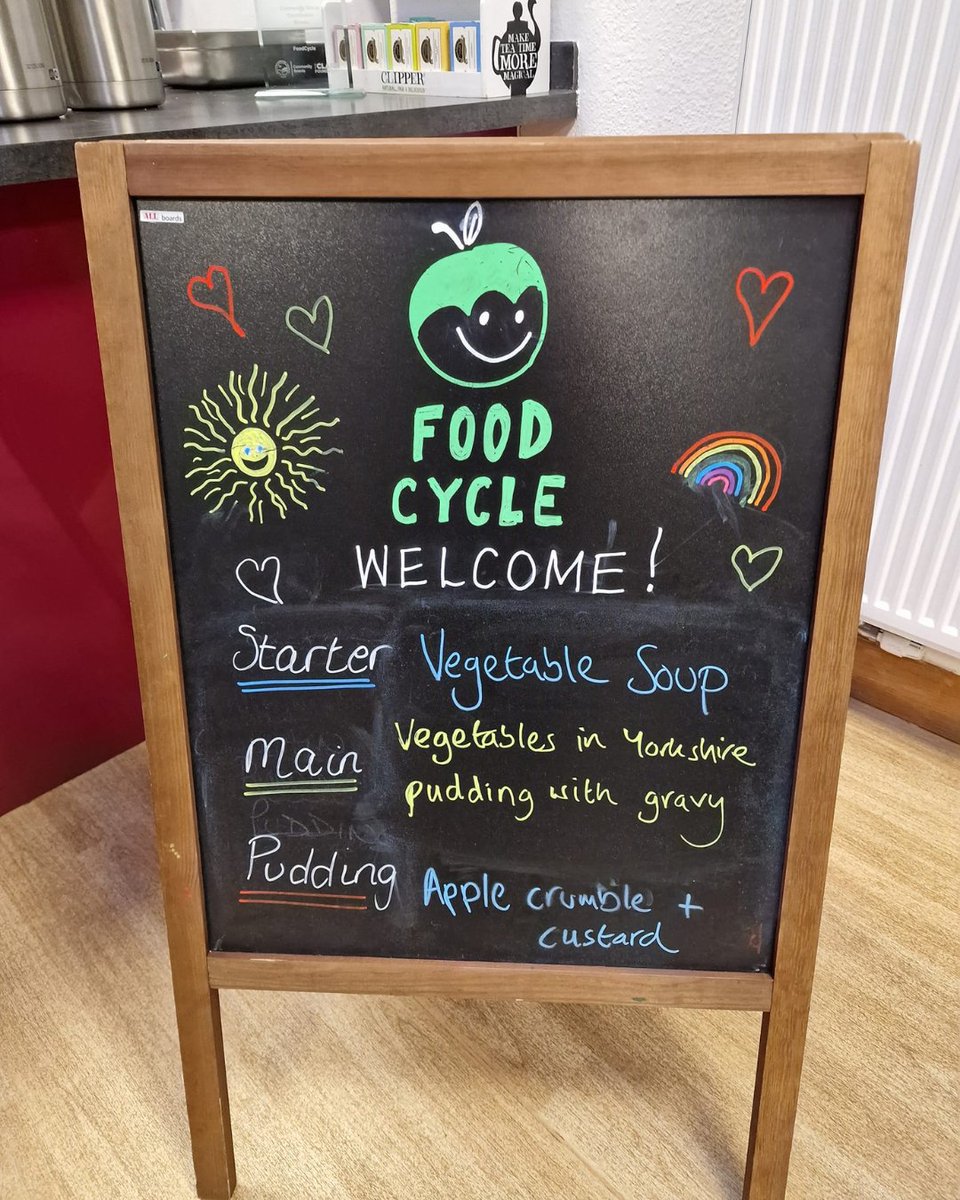 FoodCycle
CLIPPER
NATURAL, FAIR & DELICIOUS
MAKE
TEA TIME
MORE
MAGICAL
boards
FOOD
CYCLE
WELCOME!
Starter Vegetable Soup
Main Vegetables in Yorkshire
pudding with gravy
PUDDING
Pudding Apple crumble +
custard